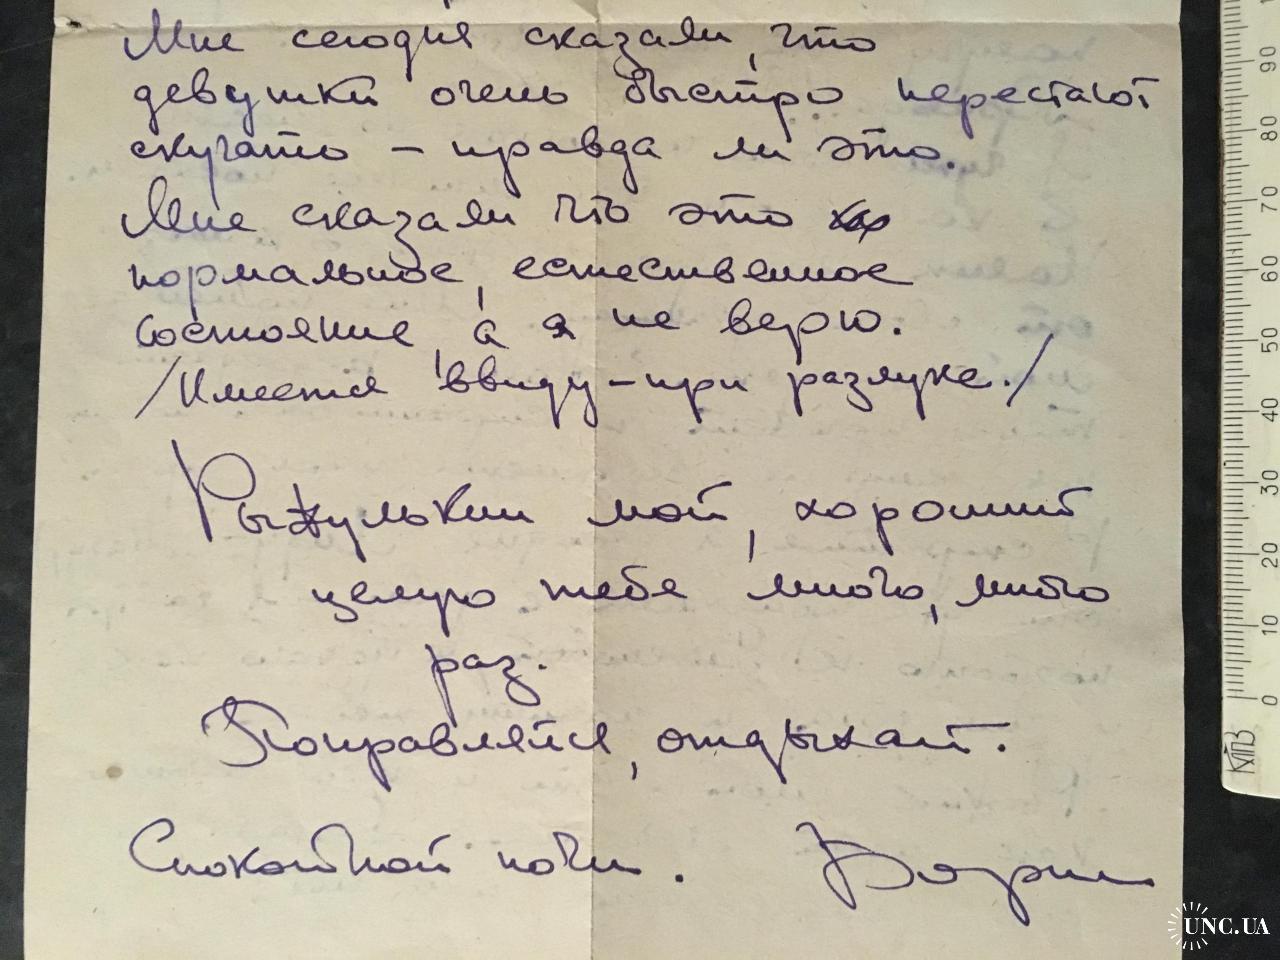 Мне сегодня сказали, что
девушки очень быстро перестают
скучать – правда ли это.
Мне сказали что это
нормальное, естественное
состояние, а я не верю.
/Имеется ввиду – при разлуке./
Рыжулькин мой, хороший
целую тебя много, много
раз.
Поправляйся, отдыхай.
Спокойной ночи. Борис
0 10 20 30 40 50 60 70 80 90
МПЗ
UNC.UA